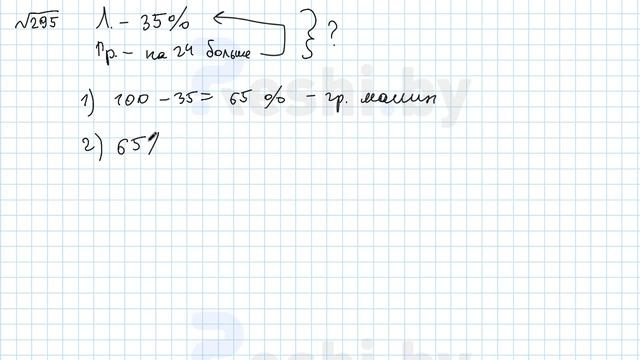 √295 Л. – 35% } ?
Гр. – на 24 больше
1) 100 – 35 = 65 % – гр. машин
2) 65%
Reshi.by
eshi.by